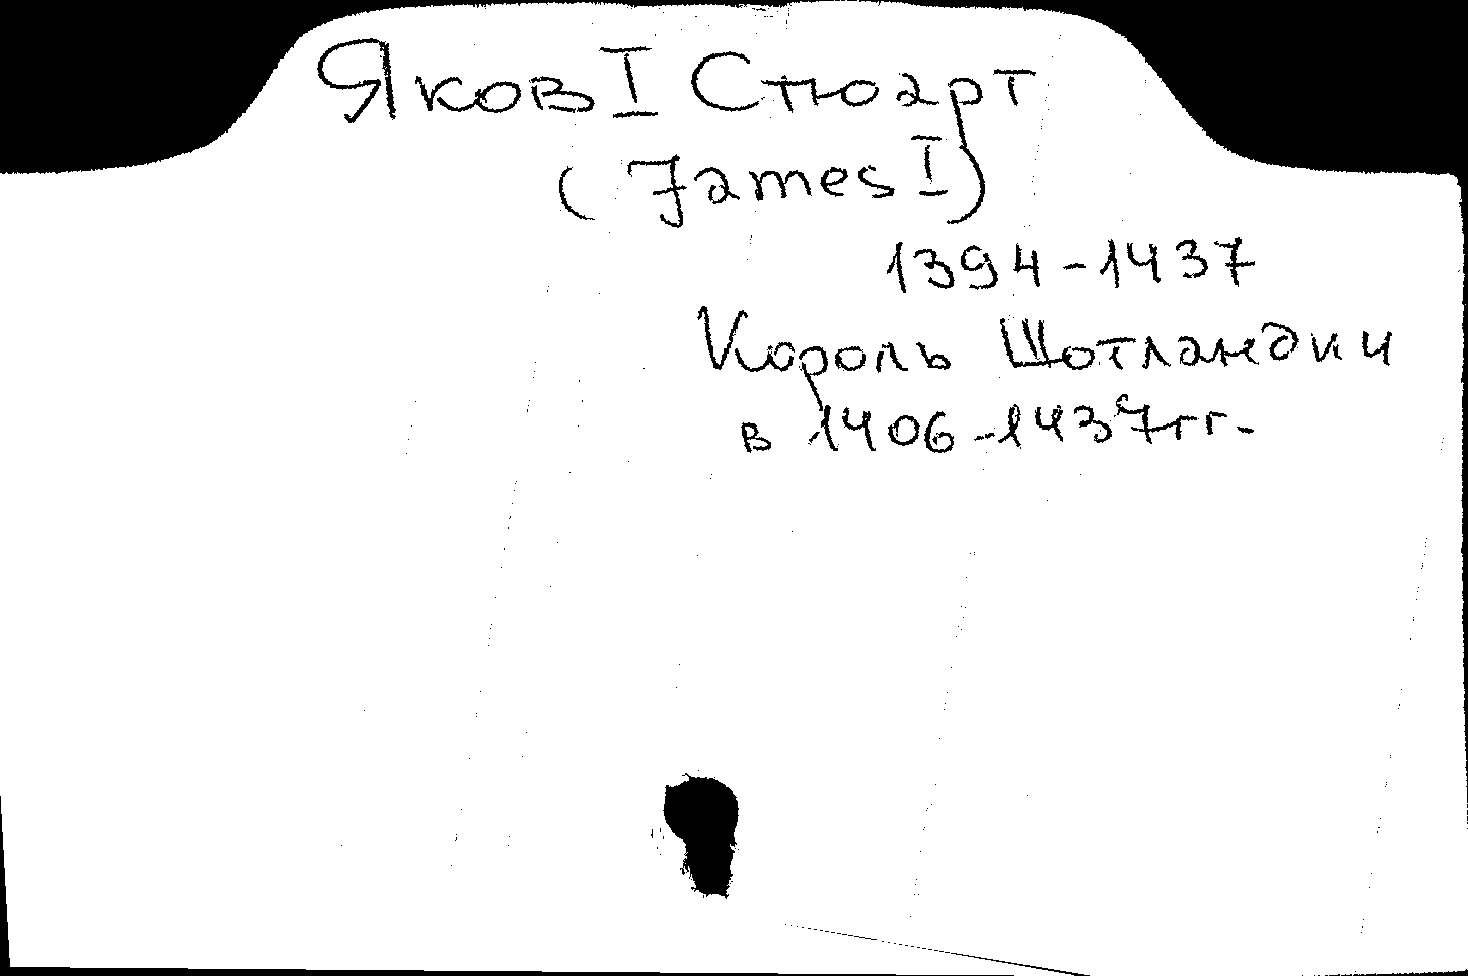 Яков I Стюарт
(James I)
1394-1437
Король Шотландии
в 1406-1437гг.